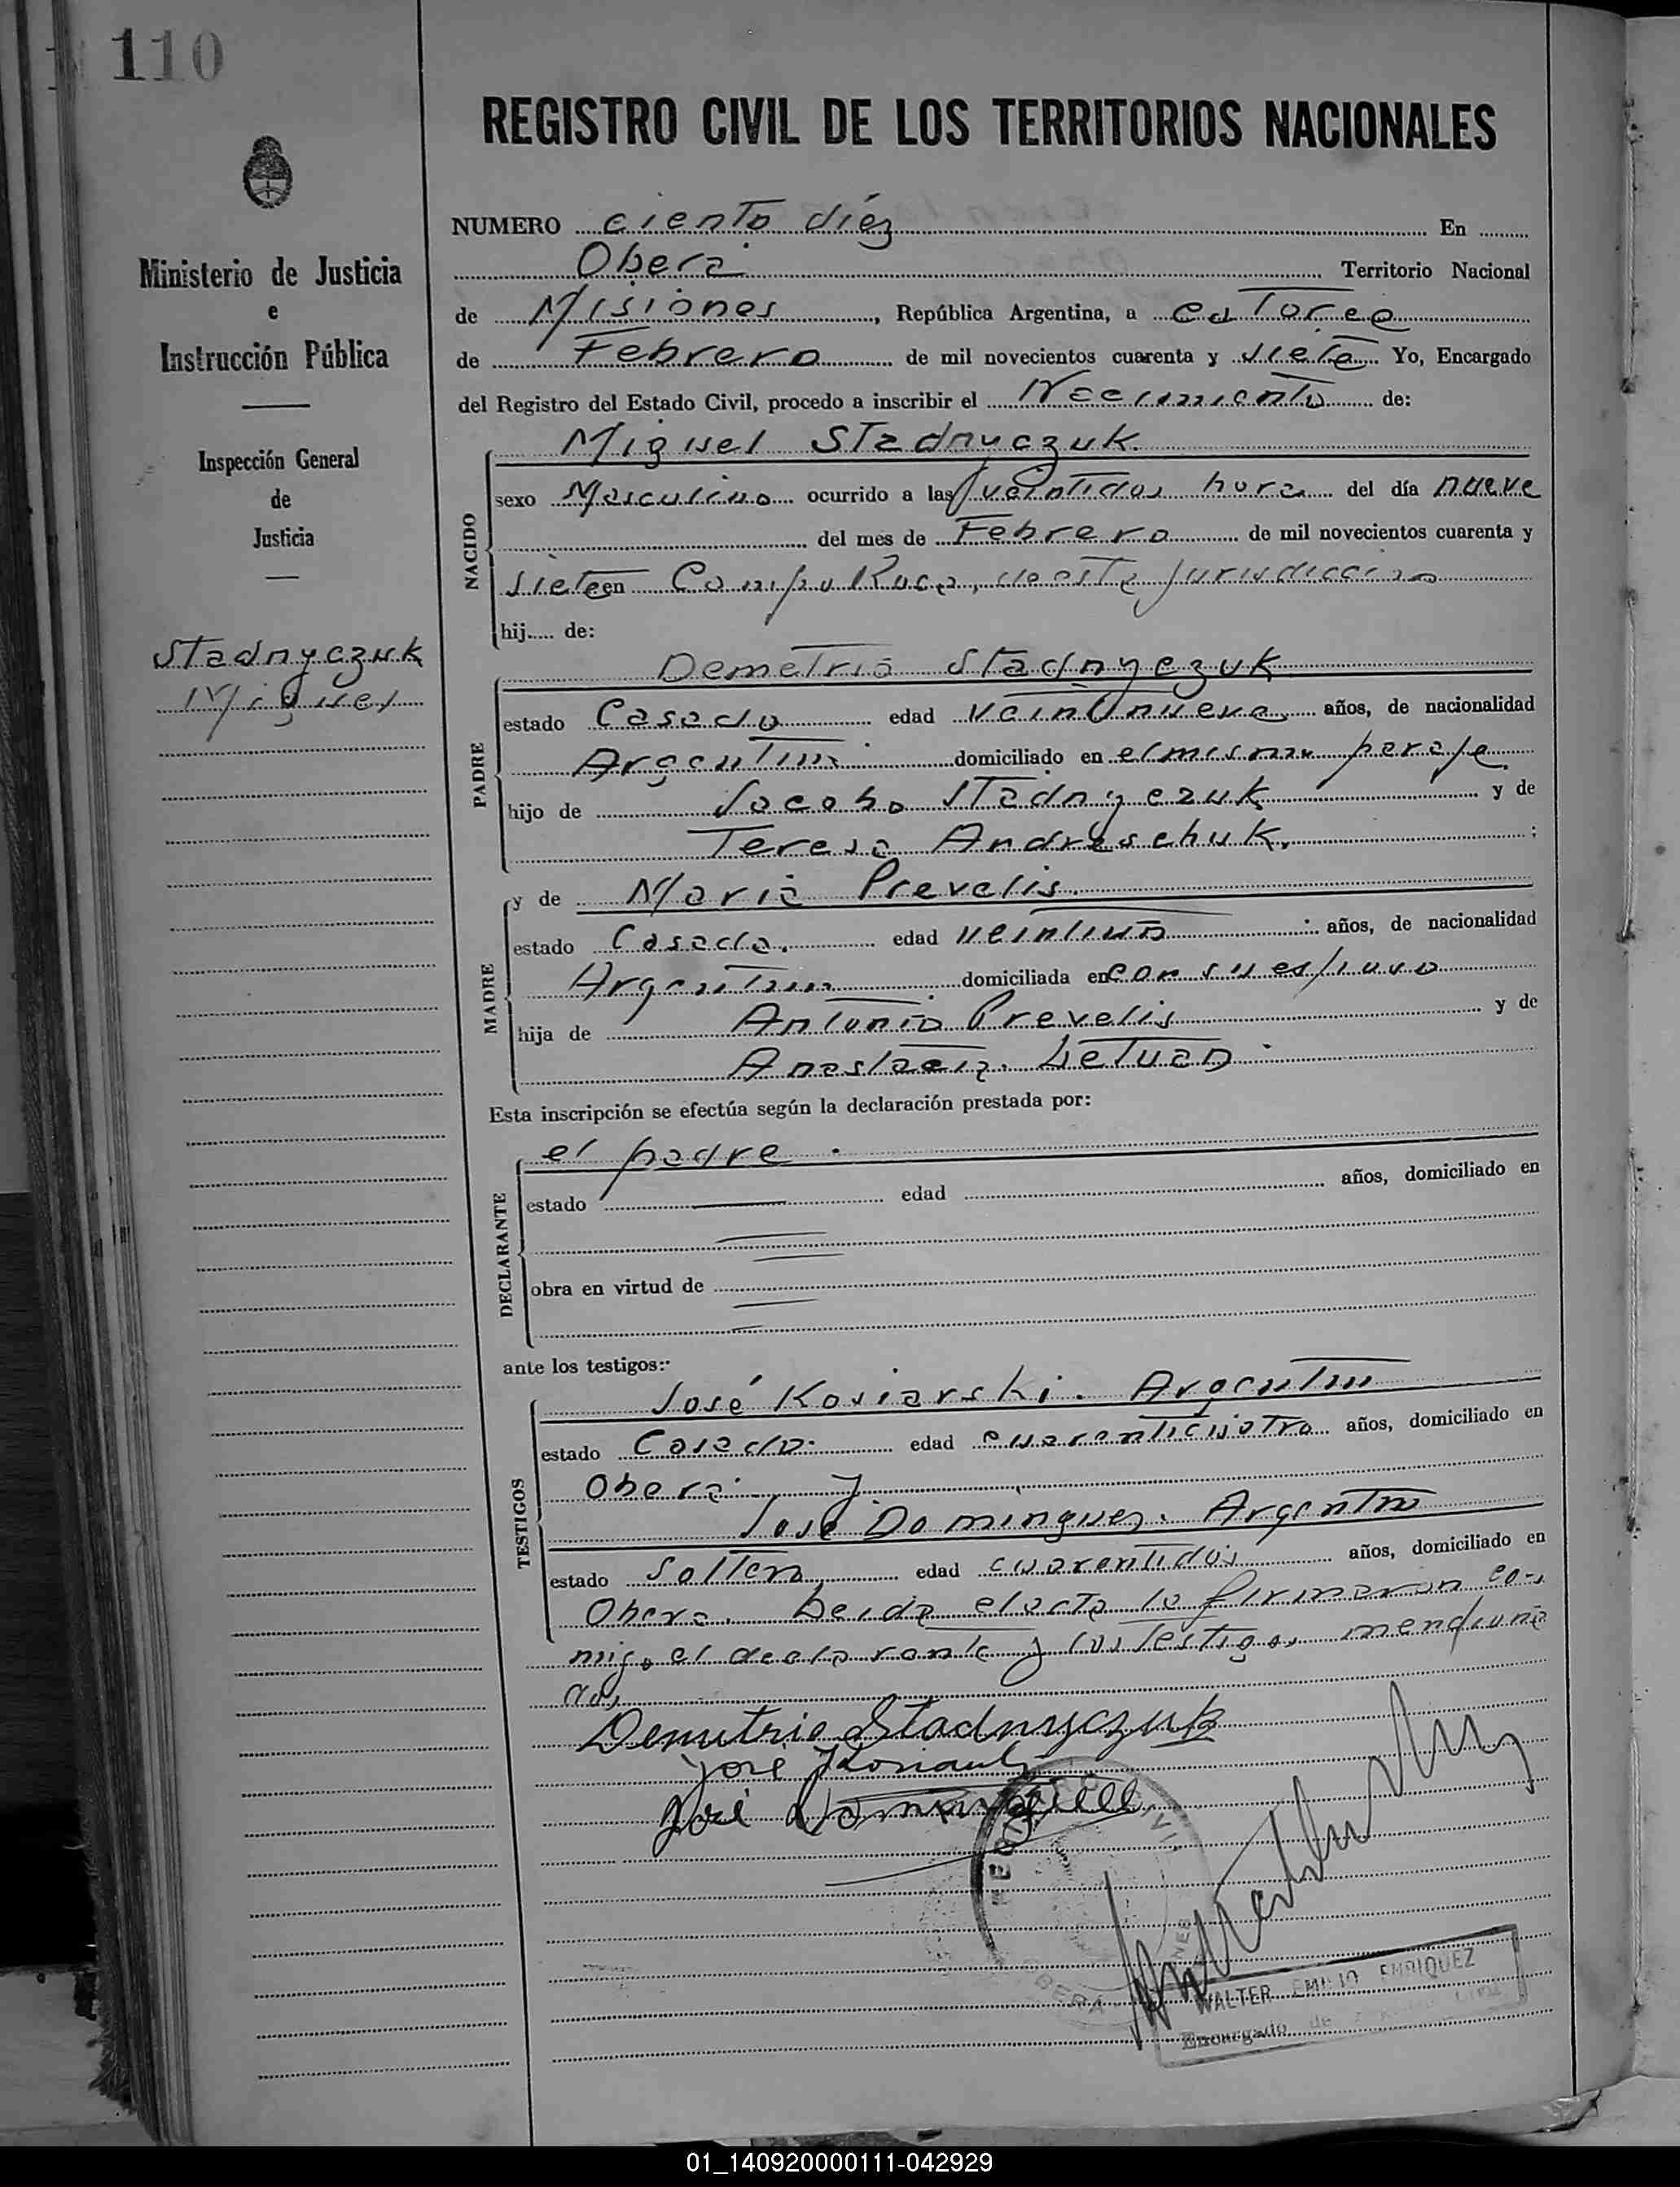 110
REGISTRO CIVIL DE LOS TERRITORIOS NACIONALES
Ministerio de Justicia
e
Instrucción Pública
Inspección General
de
Justicia
Stadnyczuk
Miguel
NUMERO ciento diéz En
Oberá Territorio Nacional
de Misiones, República Argentina, a catorce
de Febrero de mil novecientos cuarenta y siete Yo, Encargado
del Registro del Estado Civil, procedo a inscribir el Nacimiento de:
Miguel Stadnyczuk.
NACIDO
sexo Masculino ocurrido a las veintidos hora del día nueve
del mes de Febrero de mil novecientos cuarenta y
siete en Campo Roca, de esta jurisdiccion
hij..... de:
Demetrio Stadnyczuk
PADRE
estado Casado edad veintinueve años, de nacionalidad
Argentino domiciliado en el mismo paraje
hijo de Jacobo Stadnyczuk y de
Teresa Andreschuk. ;
MADRE
y de Maria Prevelis.
estado Casada. edad veintiuno años, de nacionalidad
Argentina domiciliada en con su esposo
hija de Antonio Prevelis y de
Anastacia Letuan
Esta inscripción se efectúa según la declaración prestada por:
el padre.
DECLARANTE
estado edad años, domiciliado en
obra en virtud de
ante los testigos:
José Kosiarski. Argentino
TESTIGOS
estado Casado edad cuarenticuatro años, domiciliado en
Oberá y
José Dominguez. Argentino
estado Soltero, edad cuarentidós años, domiciliado en
Oberá. Leida el acta la firmaron con-
migo el declarante y los testigos menciona
dos
Demetrio Stadnyczuk
José
José
OBERA
WALTER EMILIO ENRIQUEZ
Encargado de
01_140920000111-042929